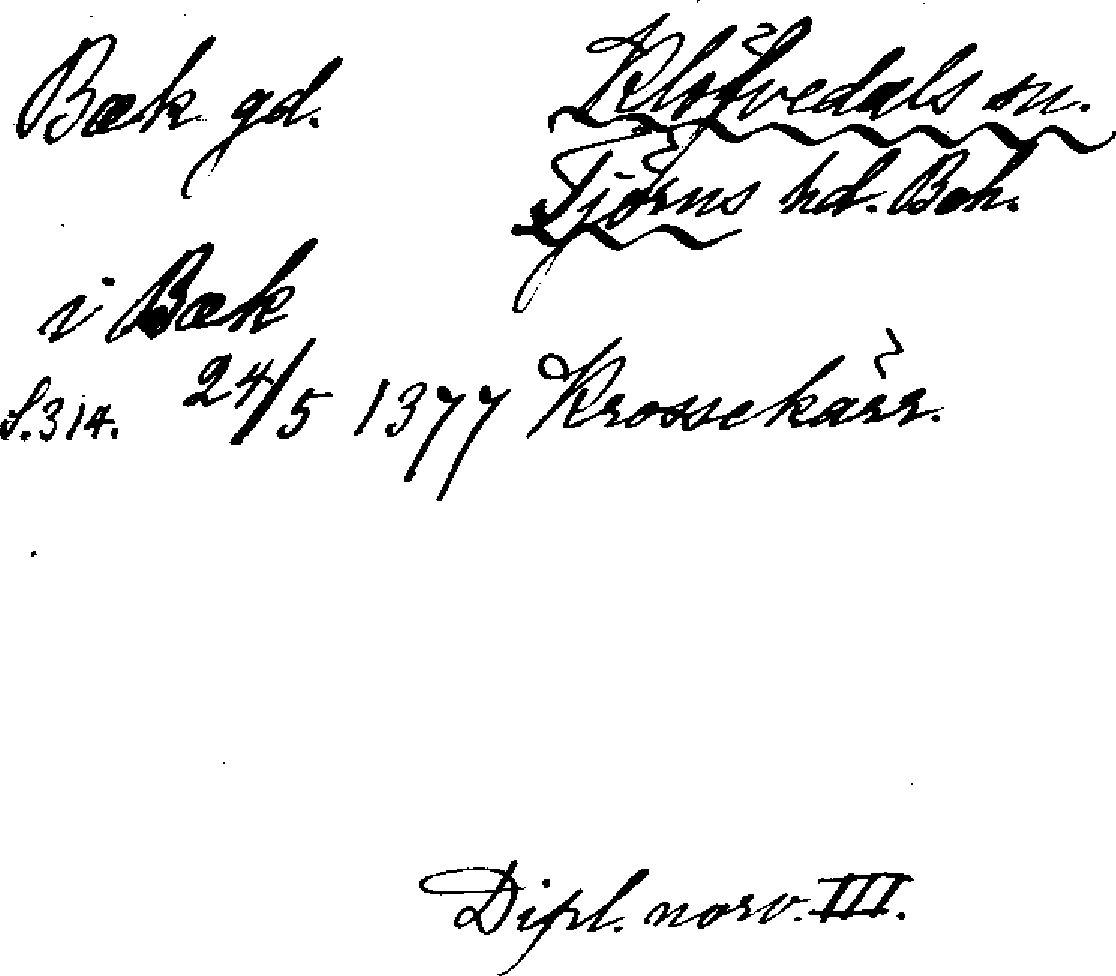 Bæk gd.
Klöfvedals sn.
Tjörns hd. Boh.
i Bæk
S. 314. 24/5 1377 Krossekärr.
Dipl. norv. III.